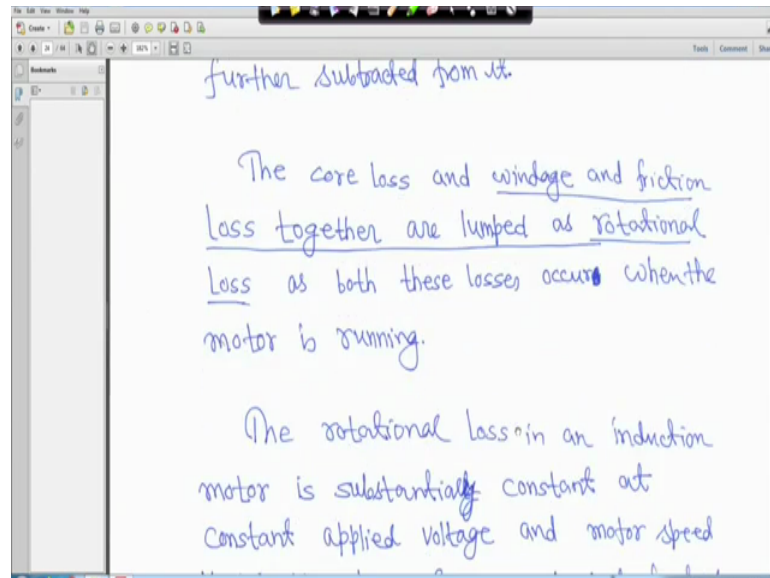 File Edit View Window Help
Create
24 / 44
162%
Tools Comment
Bookmarks
further subtracted from it.
The core loss and windage and friction
loss together are lumped as rotational
loss as both these losses occur when the
motor is running.
The rotational loss in an induction
motor is substantially constant at
constant applied voltage and motor speed